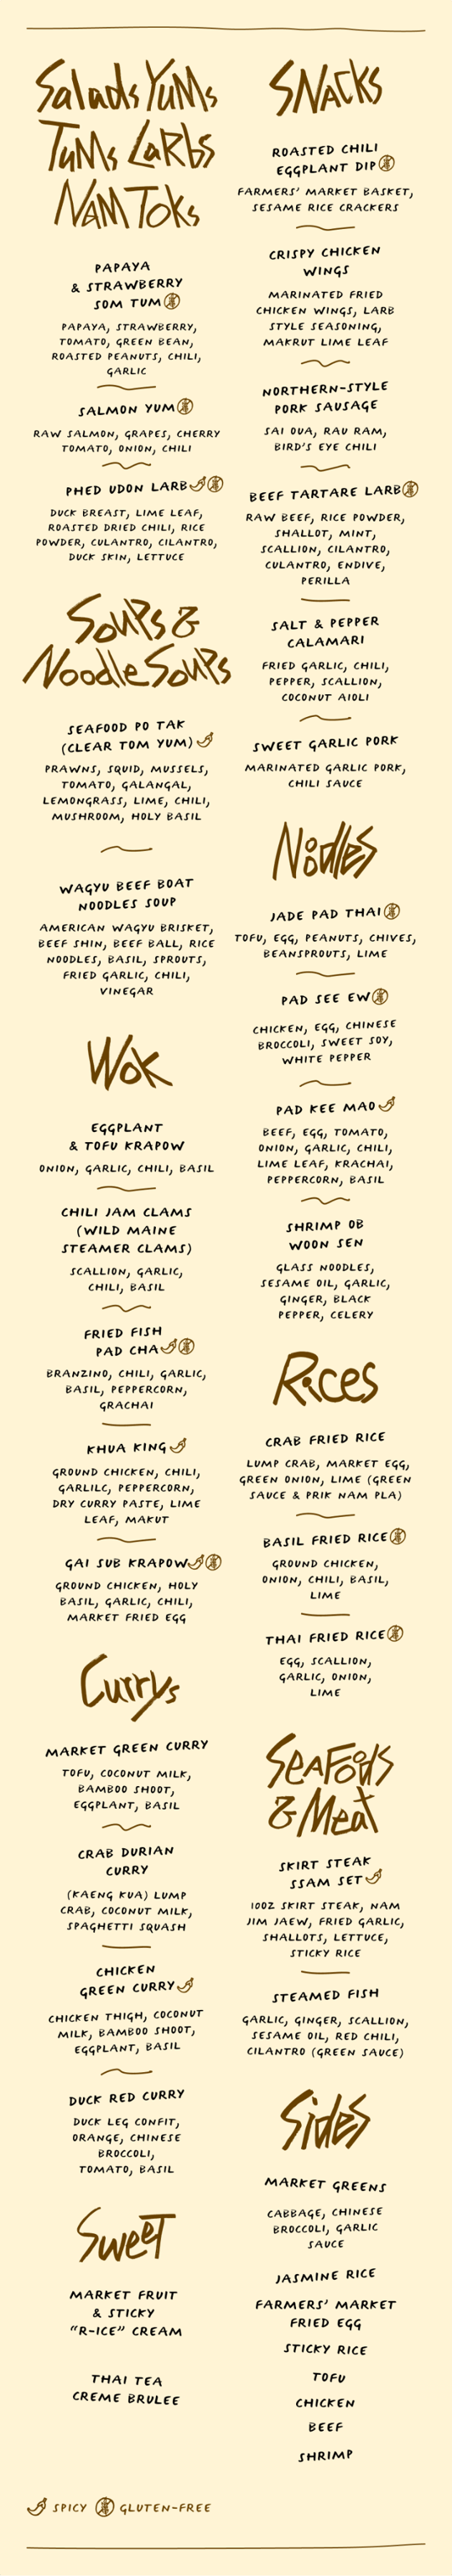 Salads Yums
Tums Larbs
Nam Toks
PAPAYA
& STRAWBERRY
SOM TUM
PAPAYA, STRAWBERRY,
TOMATO, GREEN BEAN,
ROASTED PEANUTS, CHILI,
GARLIC
SALMON YUM
RAW SALMON, GRAPES, CHERRY
TOMATO, ONION, CHILI
PHED UDON LARB
DUCK BREAST, LIME LEAF,
ROASTED DRIED CHILI, RICE
POWDER, CULANTRO, CILANTRO,
DUCK SKIN, LETTUCE
Soups &
Noodle Soups
SEAFOOD PO TAK
(CLEAR TOM YUM)
PRAWNS, SQUID, MUSSELS,
TOMATO, GALANGAL,
LEMONGRASS, LIME, CHILI,
MUSHROOM, HOLY BASIL
WAGYU BEEF BOAT
NOODLES SOUP
AMERICAN WAGYU BRISKET,
BEEF SHIN, BEEF BALL, RICE
NOODLES, BASIL, SPROUTS,
FRIED GARLIC, CHILI,
VINEGAR
Wok
EGGPLANT
& TOFU KRAPOW
ONION, GARLIC, CHILI, BASIL
CHILI JAM CLAMS
(WILD MAINE
STEAMER CLAMS)
SCALLION, GARLIC,
CHILI, BASIL
FRIED FISH
PAD CHA
BRANZINO, CHILI, GARLIC,
BASIL, PEPPERCORN,
GRACHAI
KHUA KING
GROUND CHICKEN, CHILI,
GARLILC, PEPPERCORN,
DRY CURRY PASTE, LIME
LEAF, MAKUT
GAI SUB KRAPOW
GROUND CHICKEN, HOLY
BASIL, GARLIC, CHILI,
MARKET FRIED EGG
Currys
MARKET GREEN CURRY
TOFU, COCONUT MILK,
BAMBOO SHOOT,
EGGPLANT, BASIL
CRAB DURIAN
CURRY
(KAENG KUA) LUMP
CRAB, COCONUT MILK,
SPAGHETTI SQUASH
CHICKEN
GREEN CURRY
CHICKEN THIGH, COCONUT
MILK, BAMBOO SHOOT,
EGGPLANT, BASIL
DUCK RED CURRY
DUCK LEG CONFIT,
ORANGE, CHINESE
BROCCOLI,
TOMATO, BASIL
Sweet
MARKET FRUIT
& STICKY
"R-ICE" CREAM
THAI TEA
CREME BRULEE
Snacks
ROASTED CHILI
EGGPLANT DIP
FARMERS' MARKET BASKET,
SESAME RICE CRACKERS
CRISPY CHICKEN
WINGS
MARINATED FRIED
CHICKEN WINGS, LARB
STYLE SEASONING,
MAKRUT LIME LEAF
NORTHERN-STYLE
PORK SAUSAGE
SAI OUA, RAU RAM,
BIRD'S EYE CHILI
BEEF TARTARE LARB
RAW BEEF, RICE POWDER,
SHALLOT, MINT,
SCALLION, CILANTRO,
CULANTRO, ENDIVE,
PERILLA
SALT & PEPPER
CALAMARI
FRIED GARLIC, CHILI,
PEPPER, SCALLION,
COCONUT AIOLI
SWEET GARLIC PORK
MARINATED GARLIC PORK,
CHILI SAUCE
Noodles
JADE PAD THAI
TOFU, EGG, PEANUTS, CHIVES,
BEANSPROUTS, LIME
PAD SEE EW
CHICKEN, EGG, CHINESE
BROCCOLI, SWEET SOY,
WHITE PEPPER
PAD KEE MAO
BEEF, EGG, TOMATO,
ONION, GARLIC, CHILI,
LIME LEAF, KRACHAI,
PEPPERCORN, BASIL
SHRIMP OB
WOON SEN
GLASS NOODLES,
SESAME OIL, GARLIC,
GINGER, BLACK
PEPPER, CELERY
Rices
CRAB FRIED RICE
LUMP CRAB, MARKET EGG,
GREEN ONION, LIME (GREEN
SAUCE & PRIK NAM PLA)
BASIL FRIED RICE
GROUND CHICKEN,
ONION, CHILI, BASIL,
LIME
THAI FRIED RICE
EGG, SCALLION,
GARLIC, ONION,
LIME
Seafoods
& Meat
SKIRT STEAK
SSAM SET
10OZ SKIRT STEAK, NAM
JIM JAEW, FRIED GARLIC,
SHALLOTS, LETTUCE,
STICKY RICE
STEAMED FISH
GARLIC, GINGER, SCALLION,
SESAME OIL, RED CHILI,
CILANTRO (GREEN SAUCE)
Sides
MARKET GREENS
CABBAGE, CHINESE
BROCCOLI, GARLIC
SAUCE
JASMINE RICE
FARMERS' MARKET
FRIED EGG
STICKY RICE
TOFU
CHICKEN
BEEF
SHRIMP
SPICY GLUTEN-FREE